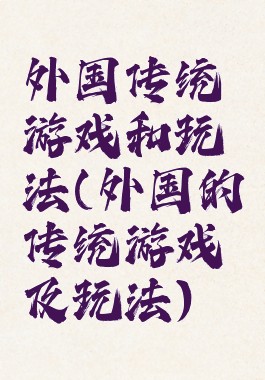 外国传统
游戏和玩
法(外国的
传统游戏
及玩法)